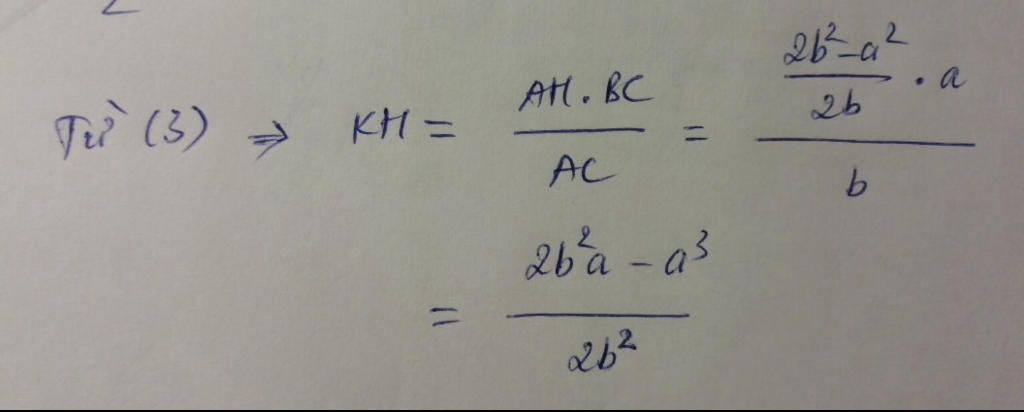 Từ (3) ⇒ KH = \frac{AH.BC}{AC} = \frac{\frac{2b^2-a^2}{2b} \cdot a}{b}
= \frac{2b^2a - a^3}{2b^2}